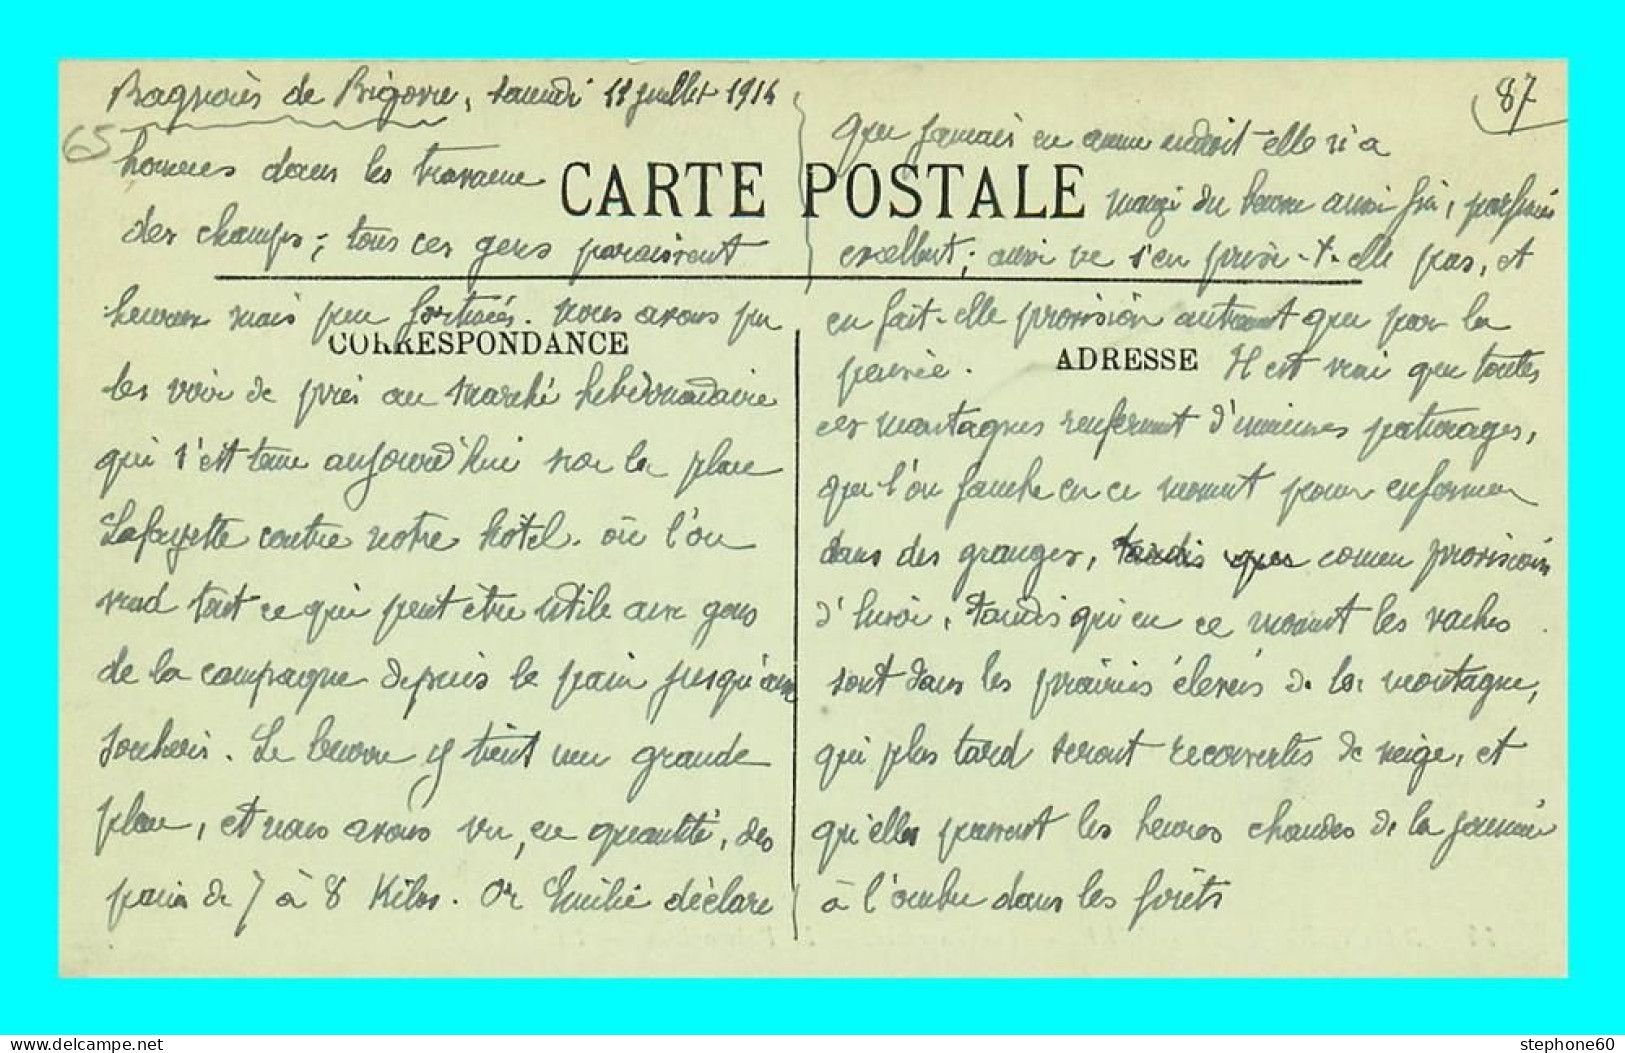 Bagnères de Bigorre, samedi 11 juillet 1914
65
hommes dans les travaux
des champs; tous ces gens paraissent
heureux mais peu fortunés. Nous avons pu
les voir de près au marché hebdomadaire
qui s'est tenu aujourd'hui sur la place
Lafayette contre notre hôtel. où l'on
vend tout ce qui peut être utile aux gens
de la campagne depuis le pain jusqu'aux
Le beurre y tient une grande
place, et nous avons vu, en quantité, des
pains de 7 à 8 Kilos. Or Emilie déclare
CARTE POSTALE
CORRESPONDANCE
87
que jamais en aucun endroit elle n'a
mangé du beurre aussi fin, parfumé
excellent; aussi ne s'en prive-t-elle pas, et
en fait-elle provision autant que par la
pensée.
ADRESSE
Il est vrai que toutes
ces montagnes renferment d'immenses pâturages,
que l'on fauche en ce moment pour enfermer
dans des granges, tandis que comme provision
d'hiver, tandis qu'en ce moment les vaches
sont dans les prairies élevées de la montagne,
qui plus tard seront recouvertes de neige, et
qu'elles passent les heures chaudes de la journée
à l'ombre dans les forêts
www.delcampe.net
stephone60